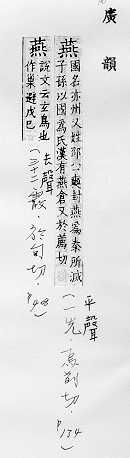 廣韻
燕 國名亦州又姓邵公奭封燕為秦所滅
子孫以國為氏漢有燕倉又於薦切
平聲
(一先·烏前切·P134
燕 說文云玄鳥也
作巢避戊己
去聲
(三十二霰·於甸切·P408)